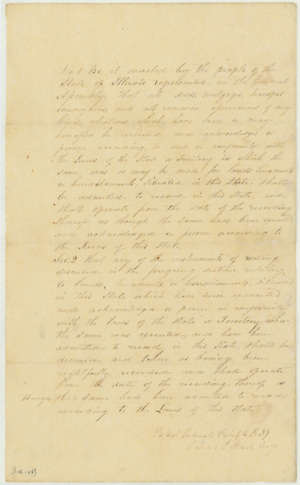 Sec 1 Be it enacted by the people of the
State of Illinois represented in the General
Assembly That all deeds, mortgages,
conveyances and all
which have been or may
hereafter be executed and acknowledged or
proven according to and in conformity with
the Laws of the State or Territory in which the
same was or may be made for lands tenements
or hereditaments, situated in this State shall
be admitted to record in this state and
shall operate from the date of the recording
thereof as though the same had been executed
and acknowledged or proven according to
the Laws of this State
Sec. 2 That any of the instruments of writing
described in the foregoing section relating
to Lands, tenements or hereditaments, situated
in this State which have been executed
and acknowledged or proven in conformity
with the Laws of the State or Territory where
the same was executed, and have been
admitted to record, in this State shall be
deemed and taken as having been
rightfully recorded and shall operate
from the date of the recording thereof as
though the same had been admitted to record
according to the Laws of this State